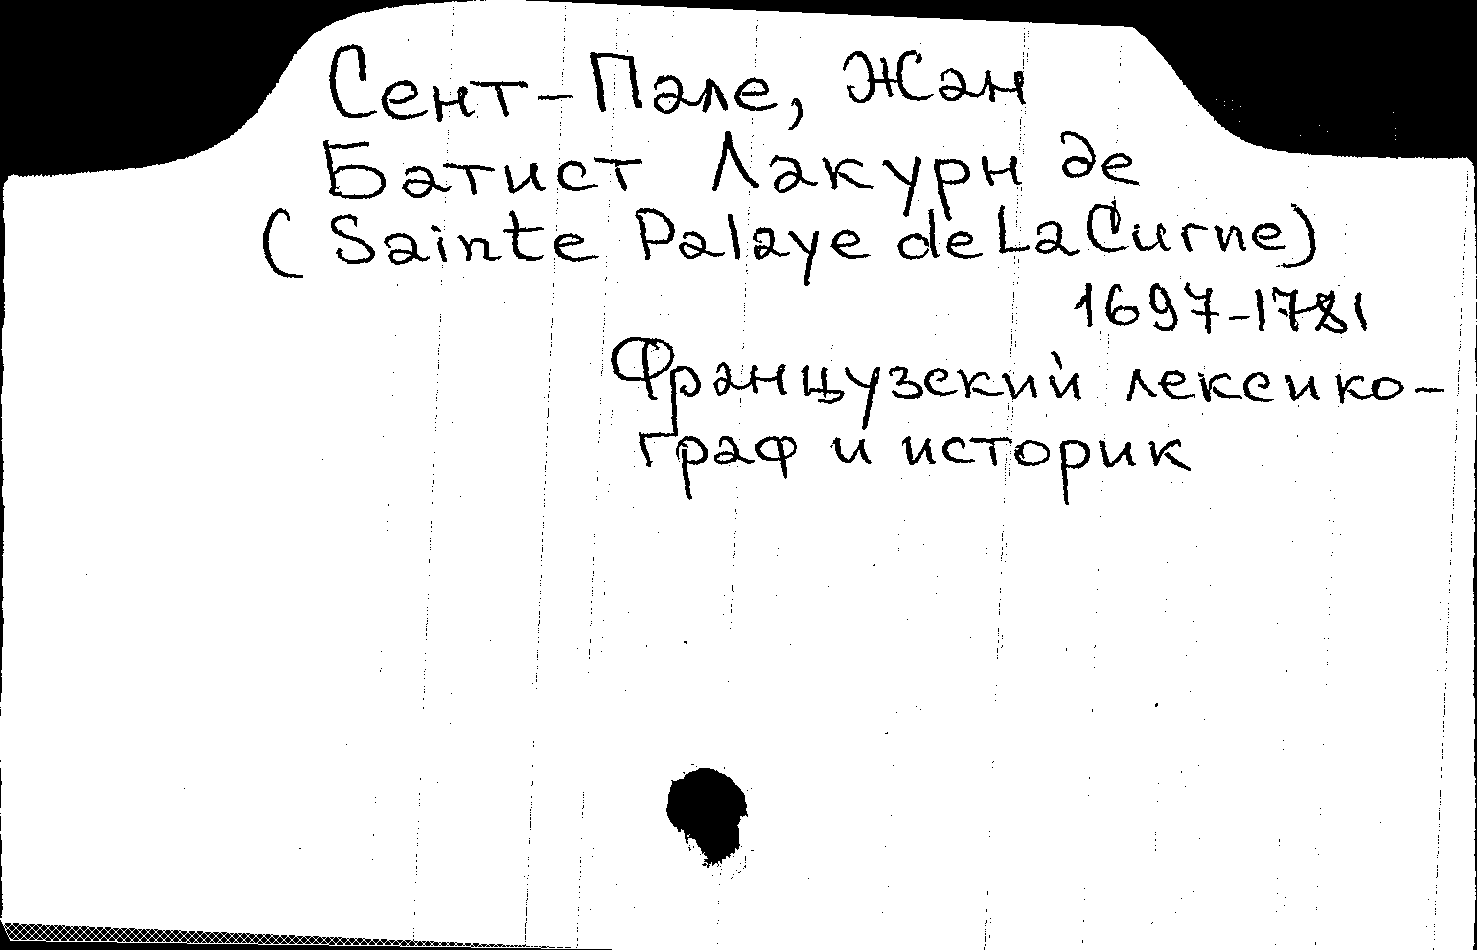 Сент-Пале, Жан
Батист Лакурн де
(Sainte Palaye de La Curne)
1697-1781
Французский лексико-
граф и историк